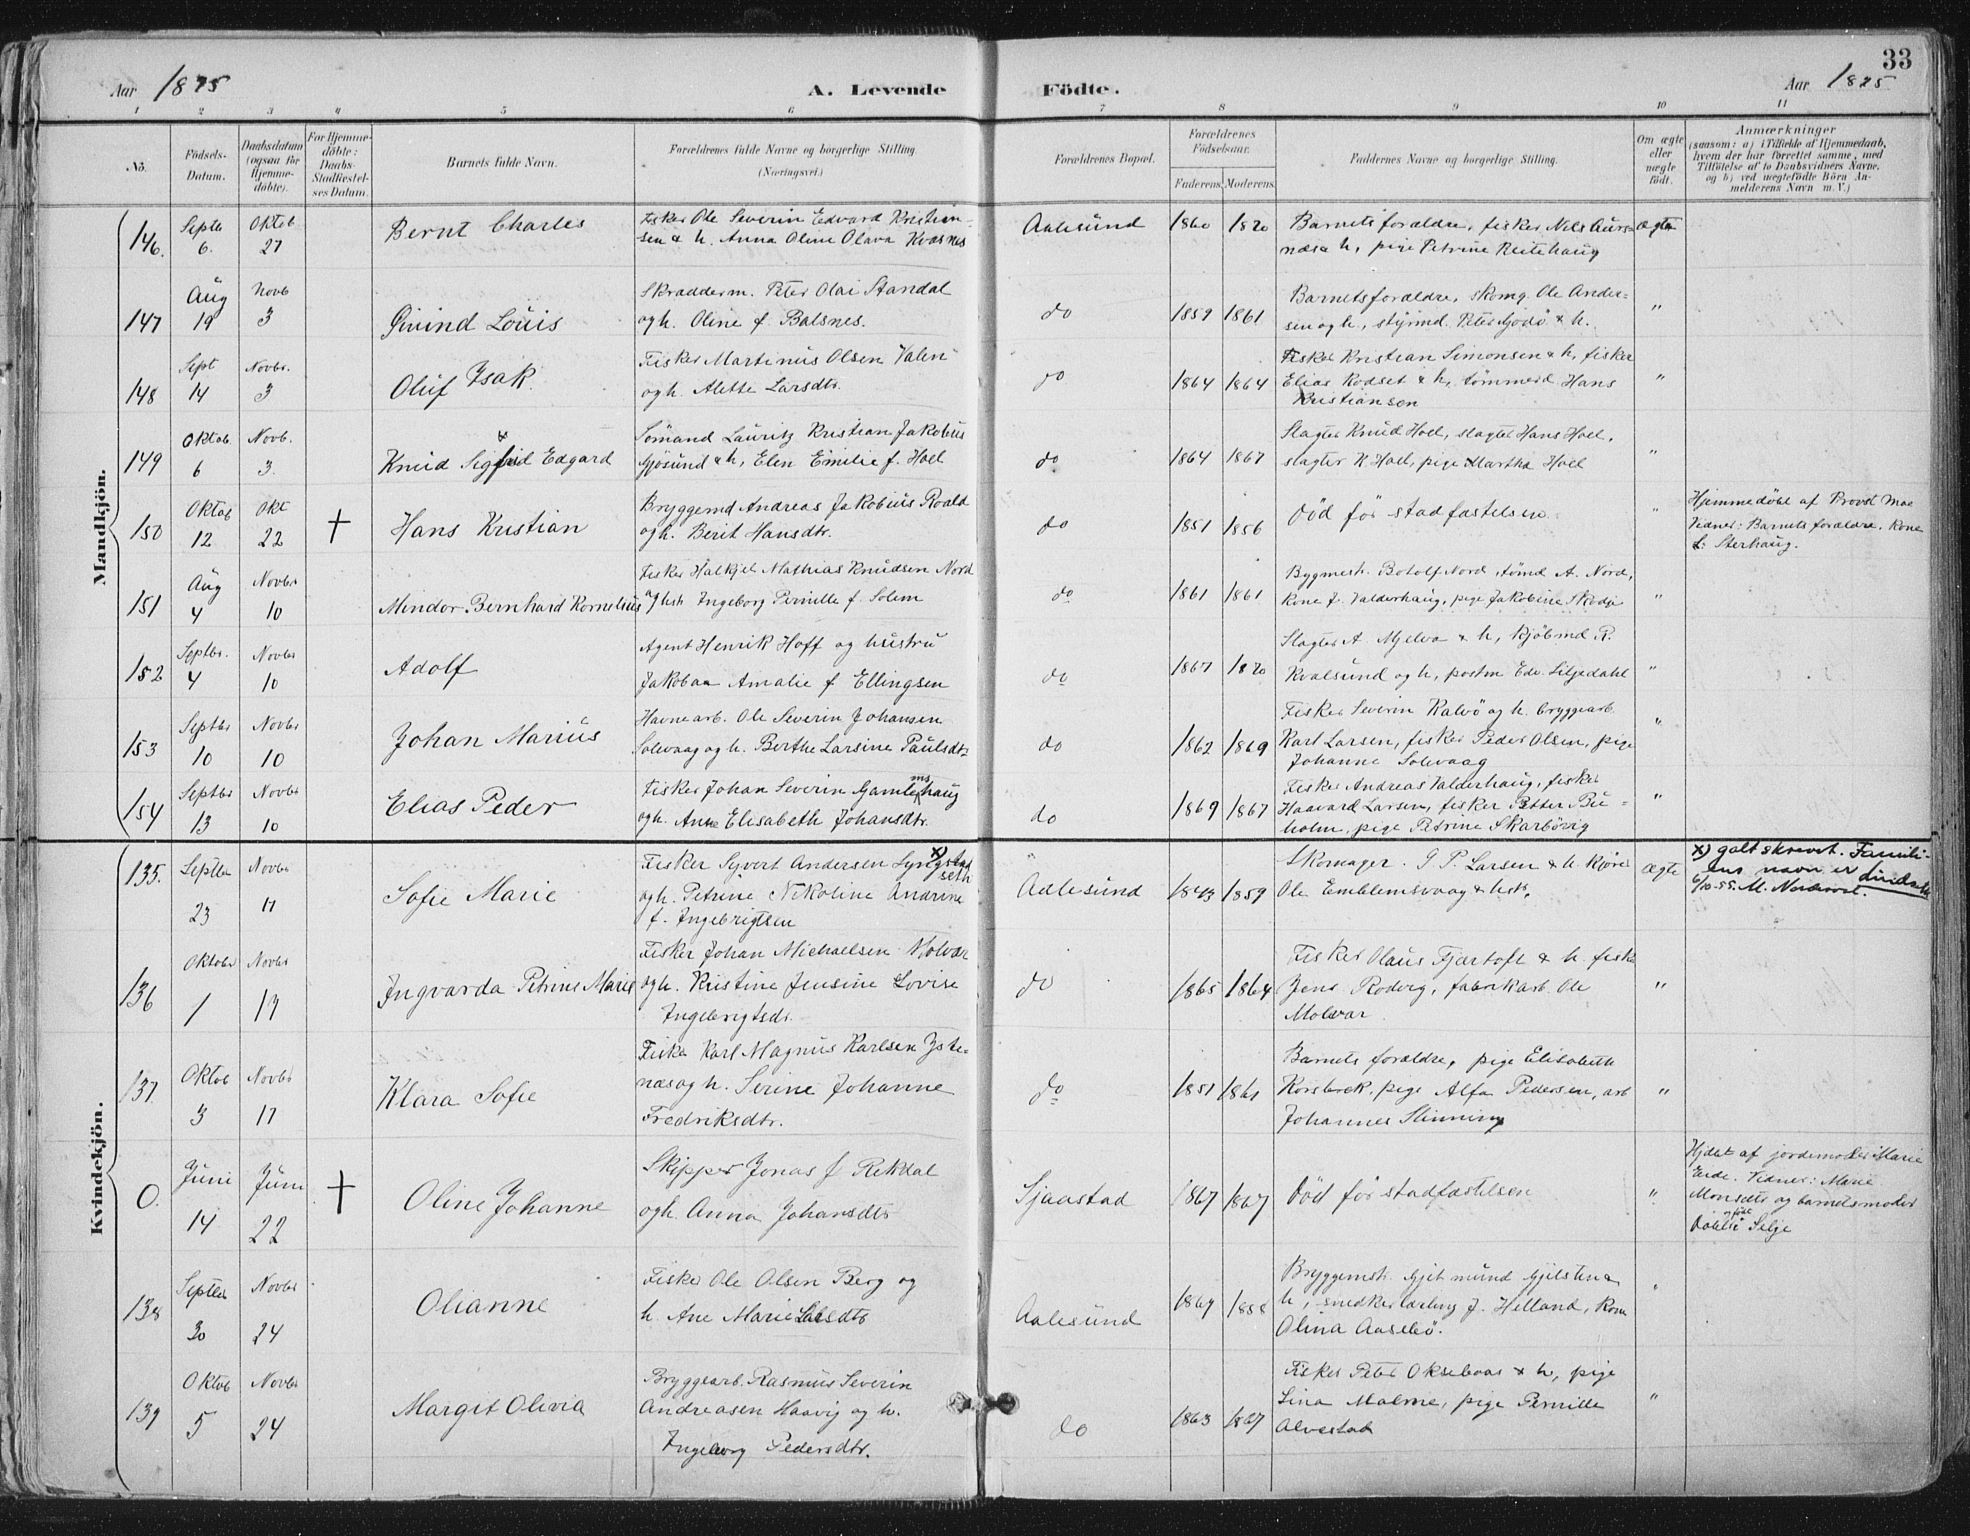 33
Aar 1895 A. Levende Födte. Aar 1895
1 2 3 4 5 6 7 8 9 10 11
No. Födsels-Datum. Daabsdatum (ogsaa for Hjemme-döbte). For Hjemme-döbte: Daabs-Stadfæstel-ses Datum. Barnets fulde Navn. Forældrenes fulde Navne og borgerlige Stilling. (Næringsvei.) Forældrenes Bopæl. Forældrenes Födselsaar. Faderens. Moderens. Faddernes Navne og borgerlige Stilling. Om ægte eller uægte födt. Anmærkninger (saasom: a) i Tilfælde af Hjemmedaab, hvem der har forrettet samme, med Tilföielse af to Daabsvidners Navne, og b) ved uægtefödte Börn An-melderens Navn m. V.)
Mandkjön.
146. Septb 6. Oktob 27 Bernt Charles Fisker Ole Severin Edvard Kristian-
sen & h. Anna Oline Olava Kvasnes Aalesund 1860 1870 Barnets forældre, fisker Nils Aurs-
næs & h, pige Petrine Reitehaug ægte
147 Aug 19 Novb 3 Øivind Louis Skrædderm. Peter Olai Standal
og h. Oline f. Balsnes. do 1859 1861 Barnets forældre, skomg. Ole Ander-
sen og h, styrmd. Peter Godö & h. "
148 Sept 14 Novbr. 3 Oluf Isak Fisker Martinus Olsen Valen
og h. Alette Larsdtr. do 1864 1864 Fisker Kristian Simonsen & h, fisker
Elias Rodset & h, tömmermd Hans
Kristiansen "
149 Oktob. 6 Novb. 3. Knud Sigfrid Edgard Sömand Lauritz Kristian Jakobius
Gjösund & h, Elen Emilie f. Hoel do 1864 1867 Slagter Knud Hoel, slagter Hans Hoel,
slagter N. Hoel, pige Martha Hoel "
150 Oktob 12 Okt 22 † Hans Kristian Bryggemd Andreas Jakobius Roald
og h. Berit Hansdtr. do 1851 1856 Död för stadfæstelsen " Hjemmedöbt af Provst Moe
Vidner: Barnets forældre, Kone
Sterhaug.
151 Aug 4 Novbr 10 Mindor Bernhard Kornelius Fisker Halkjel Mathias Knudsen Nord
og hst Ingeborg Pernille f. Solem do 1861 1861 Bygmest. Botolf Nord, tömd A. Nord,
Kone J. Valderhaug, pige Jakobine Skodje "
152 Septbr. 4 Novbr 10 Adolf Agent Henrik Hoff og hustru
Jakobaa Amalie f Ellingsen do 1867 1870 Slagter A Mjelva & h, kjöbmd R.
Kvalsund og h, postm Edv. Liljedahl "
153 Septbr 10 Novbr 10 Johan Marius Havnearb. Ole Severin Johansen
Solevaag og h. Berthe Larsine Paulsdtr do 1862 1869 Fisker Severin Kalvö og h. bryggearb.
Karl Larsen, fisker Peder Olsen, pige
Johanne Solevaag "
154 Septbr 13 Novbr 10 Elias Peder Fisker Johan Severin Gamlemshaug
og h. Anne Elisabeth Johansdtr. do 1869 1867 Fisker Andreas Valderhaug, fisker
Haavard Larsen, fisker Petter Bu-
holm, pige Petrine Skarbövig "
Kvindekjön.
135. Septbr 23 Novbr 17 Sofie Marie Fisker Syvert Andersen Lyngstad x) seth
og h. Petrine Nikoline Andrine
f. Ingebrigtsen Aalesund 1843 1859 Skomager. G P. Larsen & h. kjörer
Ole Emblemsvaag & hst. ægte x) galt skrevet. Famili-
ens navn er Lindseth
6/10-55. M. Norderval.
136 Oktober 1 Novbr 17 Ingvarda Petrine Marie Fisker Johan Michaelsen Molvær
og h. Kristine Jensine Lovise
Ingebrigtsdr. do 1865 1864 Fisker Olaus Fjærtoft & h. fisker
Jens Rodvig, fabrikarb. Ole
Molvær "
137. Oktob 3 Novbr 17 Klara Sofie Fisker Karl Magnus Karlsen Yste-
næs og h. Serine Johanne
Fredriksdtr. do 1851 1861 Barnets forældre, pige Elisabeth
Korsbrek, pige Alfa Pedersen, arb
Johannes Slinning "
O. Juni 14 Juni 22 † Oline Johanne Skipper Jonas J Rekdal
og h. Anna Johansdtr Sjaastad 1867 1867 Död för stadfæstelsen " Hjdöbt af jordemoder Marie
Eide. Vidner: Marie
Monsdtr og barnets moder
Döbt og födt i Selje
138 Septbr 30 Novbr 24 Olianne Fisker Ole Olsen Berg og
h. Ane Marie Larsdtr Aalesund 1867 1858 Bryggemst. Gjetmund Gjelstena
h, snedkerlærling J. Helland, Kone
Olina Aasebö. "
139 Oktob 5 Novbr 24 Margit Olivia Bryggearb. Rasmus Severin
Andreasen Haavig og h.
Ingeborg Pedersdtr. do 1863 1867 Fisker Peter Oksebaas & h, pige
Lina Malme, pige Pernille
Alvestad "